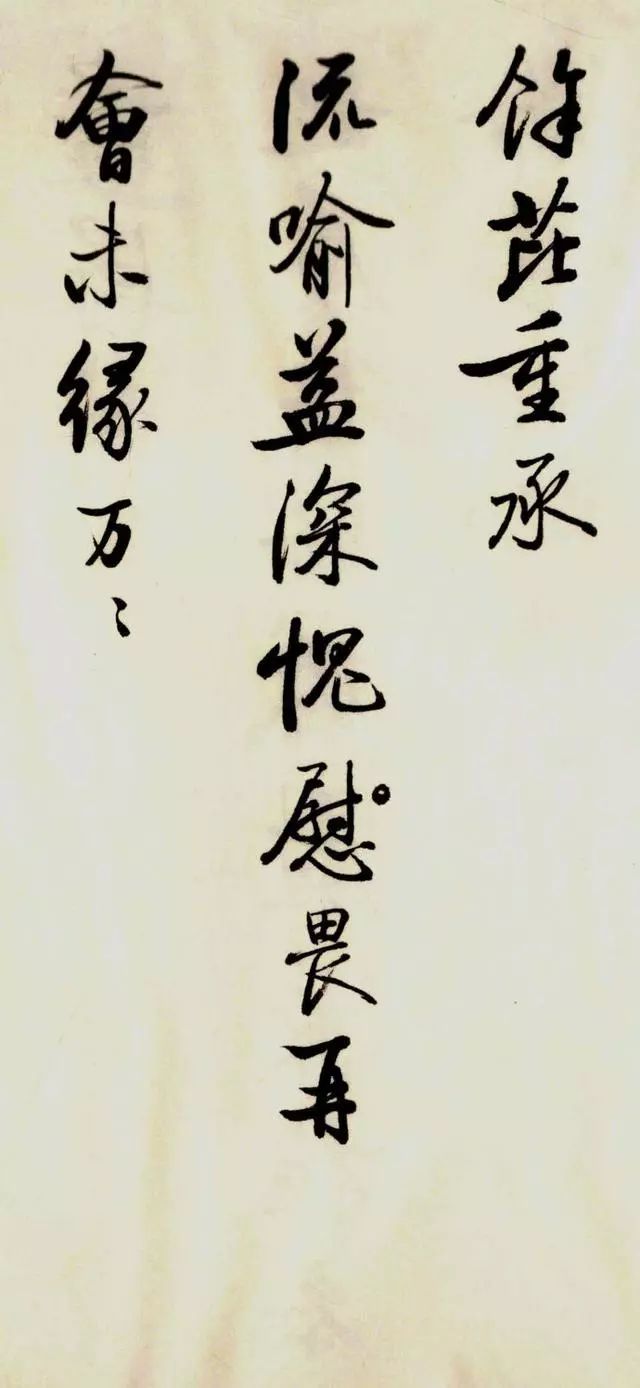 餘茈重承
流喻益深愧慰畏再
會未緣万〻